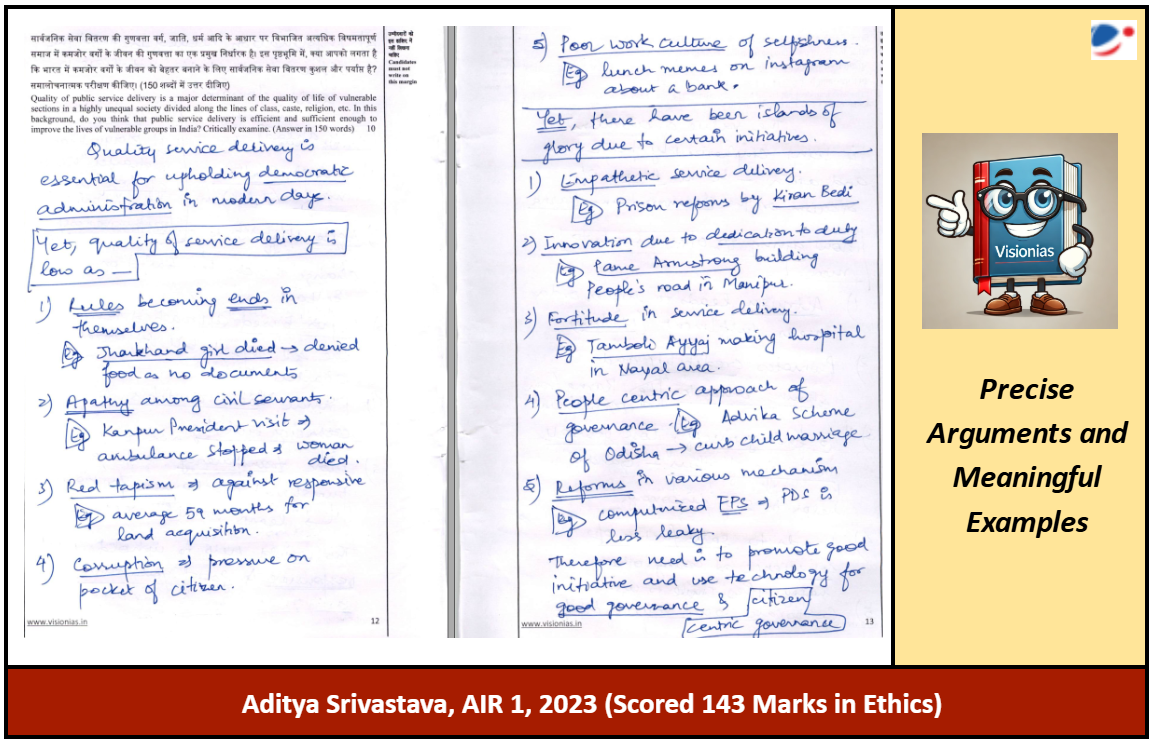 सार्वजनिक सेवा वितरण की गुणवत्ता वर्ग, जाति, धर्म आदि के आधार पर विभाजित अत्यधिक विषमतापूर्ण
समाज में कमजोर वर्गों के जीवन की गुणवत्ता का एक प्रमुख निर्धारक है। इस पृष्ठभूमि में, क्या आपको लगता है
कि भारत में कमजोर वर्गों के जीवन को बेहतर बनाने के लिए सार्वजनिक सेवा वितरण कुशल और पर्याप्त है?
समालोचनात्मक परीक्षण कीजिए। (150 शब्दों में उत्तर दीजिए)
Quality of public service delivery is a major determinant of the quality of life of vulnerable
sections in a highly unequal society divided along the lines of class, caste, religion, etc. In this
background, do you think that public service delivery is efficient and sufficient enough to
improve the lives of vulnerable groups in India? Critically examine. (Answer in 150 words) 10
उम्मीदवारों को
इस हाशिए में
नहीं लिखना
चाहिए
Candidates
must not
write on
this margin
Quality service delivery is
essential for upholding democratic
administration in modern days.
Yet, quality of service delivery is
low as —
1) Rules becoming ends in
themselves.
Eg Jharkhand girl died → denied
food as no documents
2) Apathy among civil servants.
Eg Kanpur President visit ⇒
ambulance stopped ⇒ woman
died.
3) Red tapism ⇒ against responsive
Eg average 59 months for
land acquisition.
4) Corruption ⇒ pressure on
pocket of citizen.
www.visionias.in
12
5) Poor work culture of selfishness.
Eg lunch memes on instagram
about a bank.
Yet, there have been islands of
glory due to certain initiatives.
1) Empathetic service delivery.
Eg Prison reforms by Kiran Bedi
2) Innovation due to dedication to duty
Eg Pame Armstrong building
People's road in Manipur.
3) Fortitude in service delivery.
Eg Tamboli Ayyaj making hospital
in Naxal area.
4) People centric approach of
governance. Eg Advika Scheme
of Odisha → curb child marriage
5) Reforms in various mechanism
Eg computerized FPS ⇒ PDS is
less leaky.
Therefore need is to promote good
initiative and use technology for
good governance & citizen
centric governance
www.visionias.in
13
Visionias
Precise
Arguments and
Meaningful
Examples
Aditya Srivastava, AIR 1, 2023 (Scored 143 Marks in Ethics)